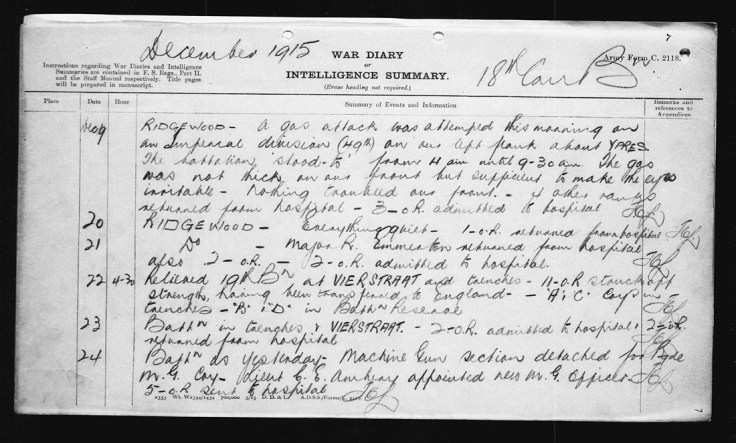 7
December 1915
WAR DIARY
or
INTELLIGENCE SUMMARY.
(Erase heading not required.)
Instructions regarding War Diaries and Intelligence
Summaries are contained in F. S. Regs., Part II.
and the Staff Manual respectively. Title pages
will be prepared in manuscript.
18th Can Bn
Army Form C. 2118.
Place Date Hour Summary of Events and Information Remarks and
references to
Appendices
19 RIDGEWOOD – A gas attack was attempted this morning on
an Imperial division (49th) on our left flank about YPRES
The battalion "stood-to" from 4 am until 9-30 am The gas
was not thick on our front but sufficient to make the eyes
irritable – Nothing troubled our front. – 4 other ranks
returned from hospital – 3-O.R. admitted to hospital
20 RIDGEWOOD – Everything quiet – 1-O.R. returned from hospital
21 Do – Major R. Emmerton returned from hospital
also 2-O.R. – 2-O.R. admitted to hospital.
22 4-30 Relieved 19th Bn at VIERSTRAAT and trenches – 11-O.R struck off
strength, having been transferred to England – "A" "C" Coys in
trenches – "B" "D" in Battn Reserve
23 Battn in trenches & VIERSTRAAT. – 2-O.R. admitted to hospital. 2-O.R.
returned from hospital
24 Battn as yesterday – Machine Gun section detached for Bgde
M. G. Coy – Lieut C. E. appointed new M. G. Officer
5-O.R sent to hospital
7